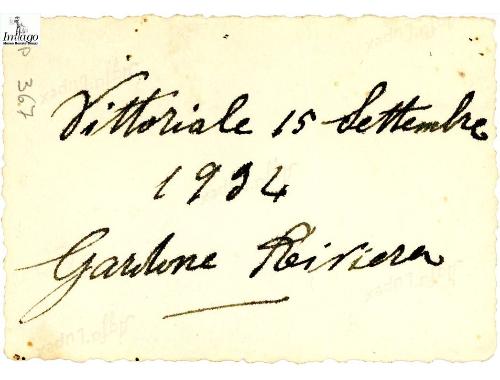 Imago
P 367
Vittoriale 15 Settembre
1934
Gardone Riviera